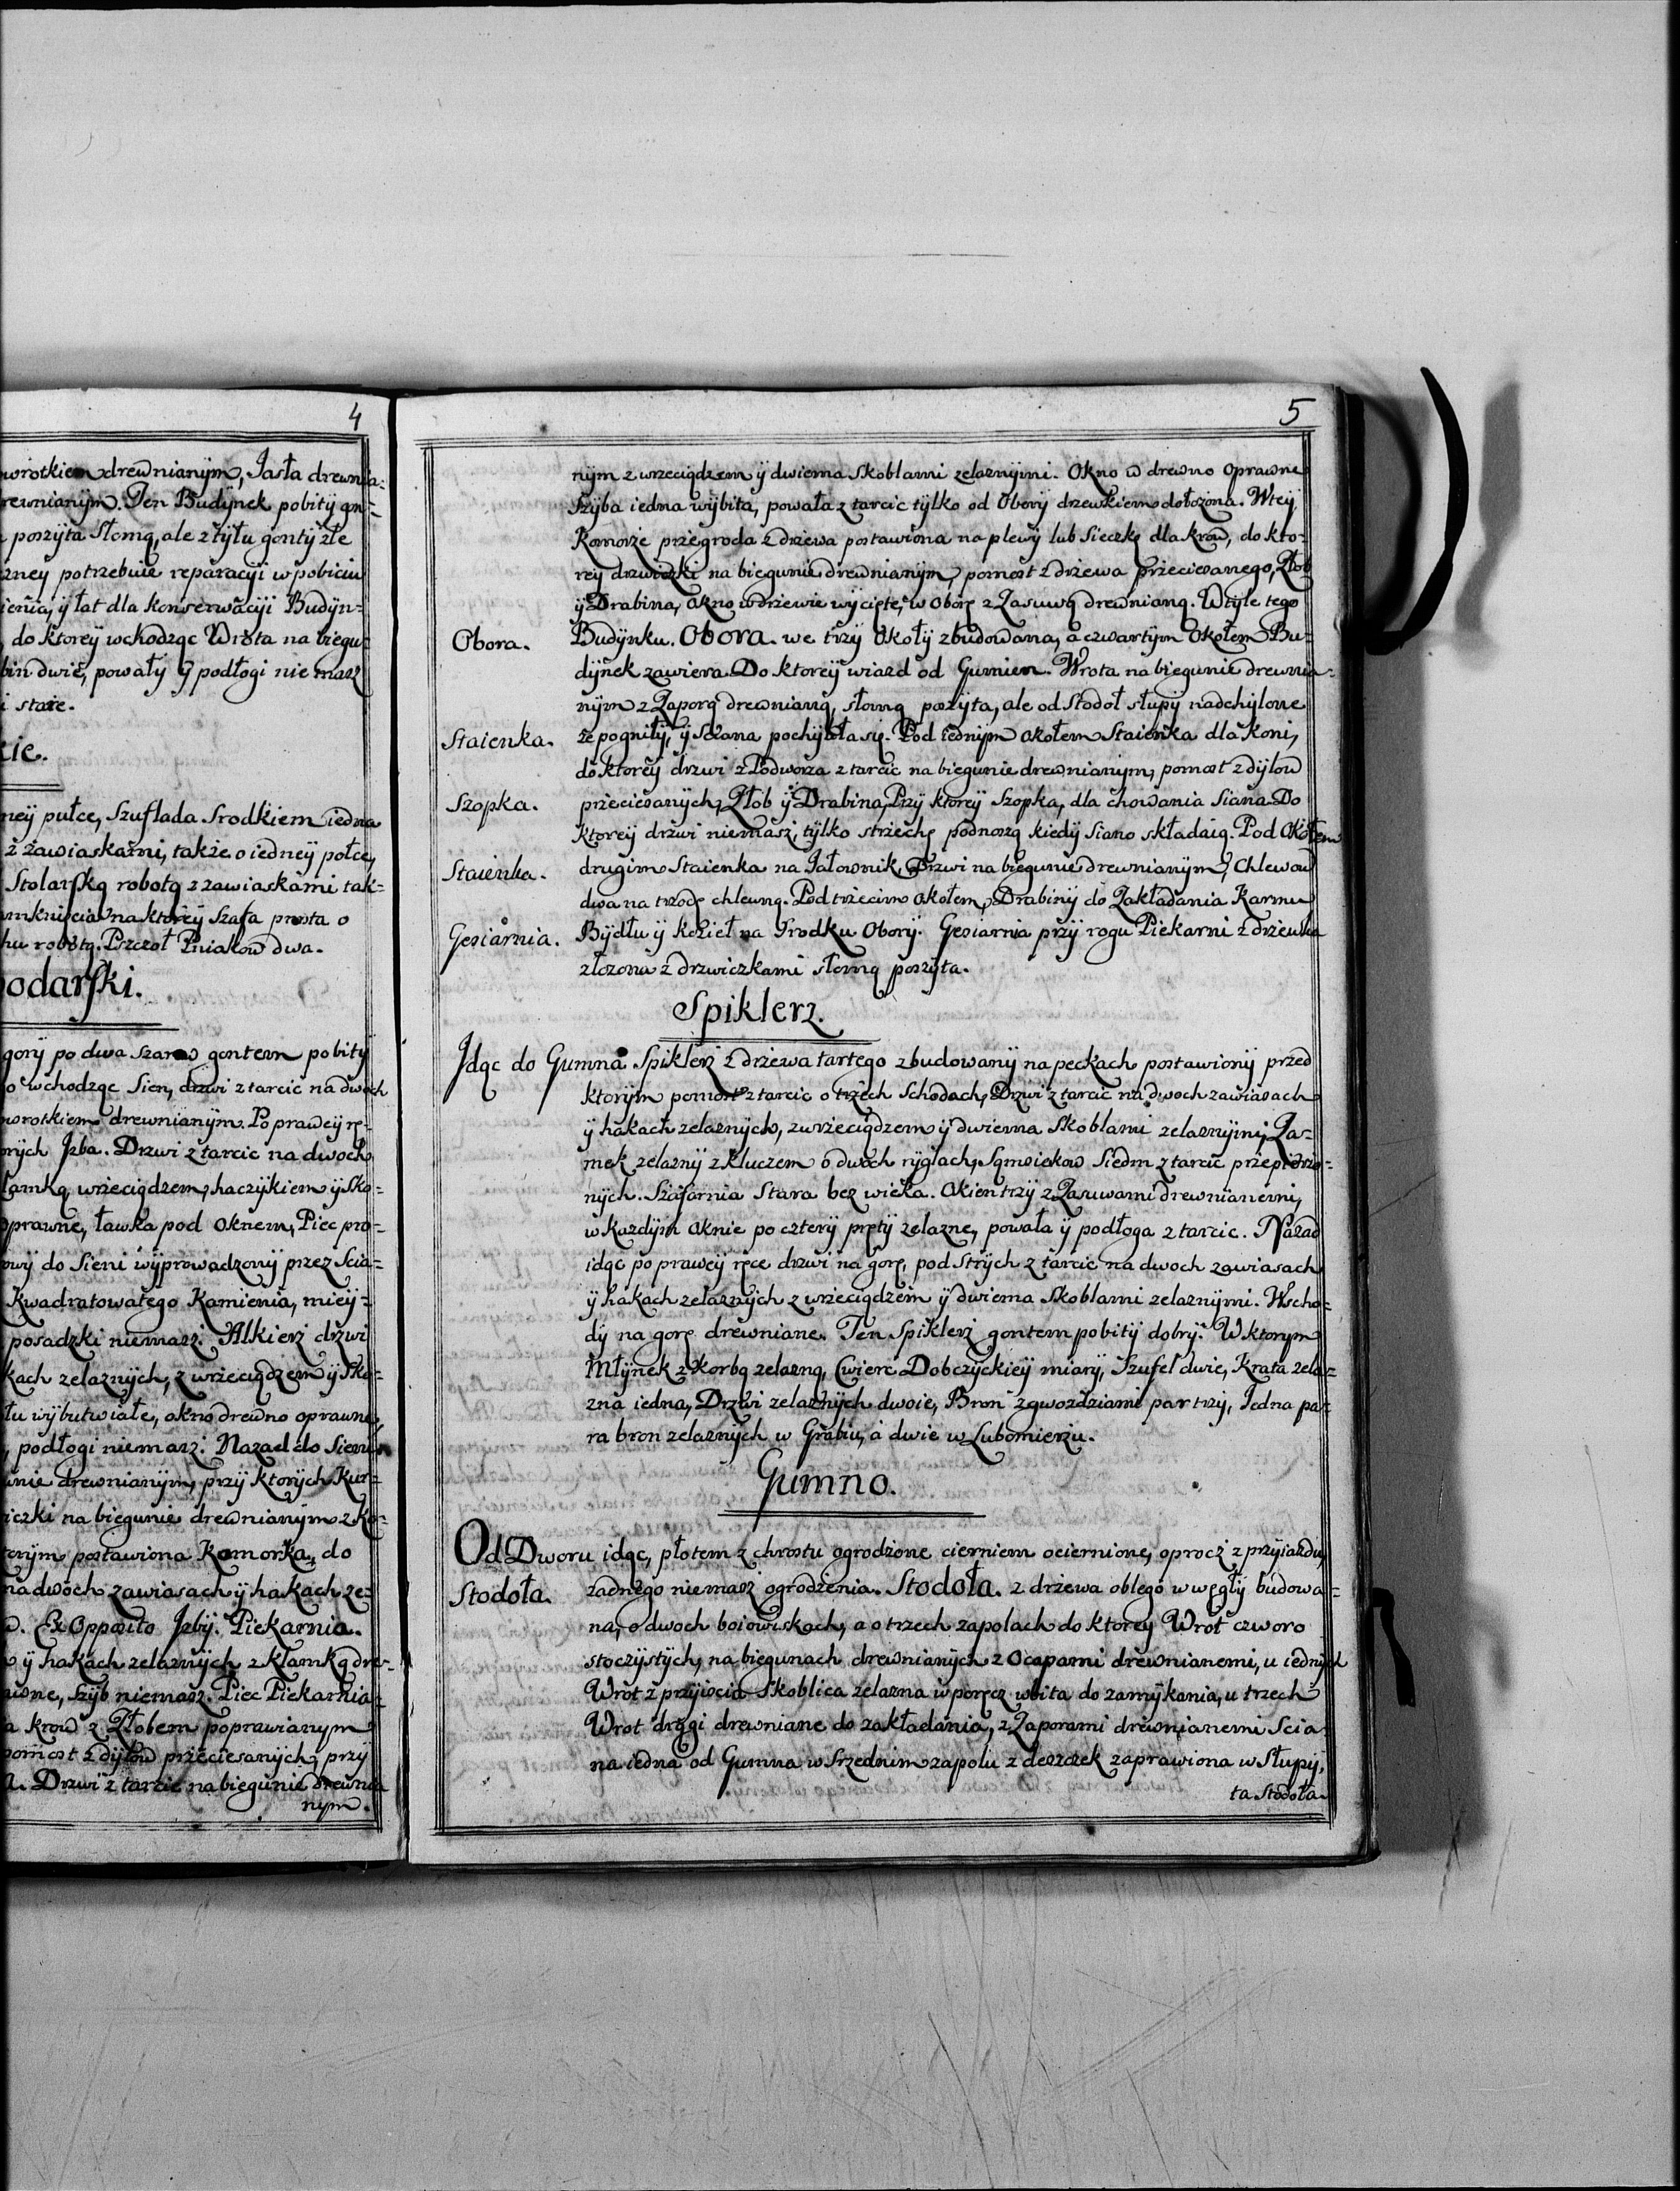 4
worotkiem drewnianÿm, Jasła drewnia=
rewnianÿm. Ten Budÿnek pobitÿ gon=
poszÿta Słomą, ale z tÿłu gontÿ złe
zneÿ potrzebuie reparacÿi w pobiciu
ÿ łat dla konserwacÿi Budÿn=
do ktoreÿ wchodząc Wrota na biegu=
bin dwie, powałÿ Ÿ podłogi nie masz
i stare.
kie.
neÿ pułce, Szuflada Srodkiem iedna
z zawiaskami, także o iedneÿ połce,
Stolarską robotą z zawiaskami tak=
amknięcia na ktoreÿ Szafa prosta o
robotą. Pszczoł Pniakow dwa.
odarski.
gorÿ po dwa Szarw gontem pobitÿ
o wchodząc Sien, drzwi z tarcic na dwoch
worotkiem drewnianÿm. Po praweÿ rę=
nÿch Jzba. Drzwi z tarcic na dwoch
lamką, wrzeciądzem, haczÿkiem ÿ Sko=
oprawne, ławka pod oknem, Piec pro=
owÿ do Sieni wÿprowadzonÿ przez Scia=
Kwadratowatego Kamienia, mieÿ=
posadzki niemasz. Alkierz drzwi
kach zelaznÿch, z wrzeciądzem ÿ Sko=
łu wÿbutwiałe, okno drewno oprawne,
podłogi niemasz. Nazad do Sieni
unie drewnianÿm, przÿ ktorÿch Kur=
iczki na biegunie drewnianÿm z Ko=
terÿm postawiona Komorka, do
na dwoch zawiasach ÿ hakach ze=
Ex Opposito Jzbÿ. Piekarnia.
ÿ hakach zelaznÿch z klamką dre=
wione, szÿb niemasz. Piec Piekarnia=
a krow z Złobem poprawianÿm
pomost z dÿlow przeciesanÿch, przÿ
a. Drzwi z tarcic na biegunie drewnia
nÿm.
5
nÿm z wrzeciądzem ÿ dwiema Skoblami zelaznÿmi. Okno w drewno oprawne
Szÿba iedna wÿbita, powała z tarcic tÿlko od Oborÿ drzewkiem dołozona. W teÿ
Komorze przegroda z drzewa postawiona na plewÿ lub Sieczkę dla krow, do kto=
reÿ drzwiczki na biegunie drewnianÿm, pomost z drzewa przeciesanego, Złob
ÿ Drabina, okno w drzewie wÿcięte, w Oborę z Zasuwą drewnianą. W tÿle tego
Obora.
Budÿnku. Obora. we trzÿ Okołÿ zbudowana, a czwartÿm Okołem Bu=
dÿnek zawiera. Do ktoreÿ wiazd od Gumien. Wrota na biegunie drewnia=
nÿm z Zaporą drewnianą, słomą poszÿta, ale od Stodoł słupÿ nadchÿlone
Staienka.
ze pogniłÿ, ÿ Sciana pochÿliła się. Pod iednÿm okołem Staienka dla Koni,
do ktoreÿ drzwi z Podworza z tarcic na biegunie drewnianÿm, pomost z dÿlow
Szopka.
przeciesanÿch, Złob ÿ Drabina, Przÿ ktoreÿ Szopka, dla chowania Siana. Do
ktoreÿ drzwi niemasz, tÿlko strzechę podnoszą kiedÿ Siano składaią. Pod Okołem
Staienka.
drugim Staienka na Jałownik, Drzwi na biegunie drewnianÿm, Chlewow
dwa na trzodę chlewną. Pod trzecim okołem, Drabinÿ do Zakładania Karmu
Gesiarnia.
Bÿdłu ÿ kozieł na Srodku Oborÿ. Gesiarnia przÿ rogu Piekarni z drzewka
złozona z drzwiczkami słomą poszÿta.
Spiklerz.
Jdąc do Gumna Spiklerz z drzewa tartego zbudowanÿ na peckach postawionÿ przed
ktorÿm pomost z tarcic o trzech Schodach, Drzwi z tarcic na dwoch zawiasach
ÿ hakach zelaznÿch, z wrzeciądzem ÿ dwiema Skoblami zelaznÿmi, Za=
mek zelaznÿ z kluczem o dwoch rÿglach, Sąmsiekow Siedm z tarcic przepierzo=
nÿch. Szafarnia Stara bez wieka. Okien trzÿ z Zasuwami drewnianemi,
w kazdÿm oknie po czterÿ prętÿ zelazne, powała ÿ podłoga z tarcic. Nazad
idąc po praweÿ ręce drzwi na gorę, pod Strÿch z tarcic na dwoch zawiasach
ÿ hakach zelaznÿch z wrzeciądzem ÿ dwiema Skoblami zelaznÿmi. Wscho=
dÿ na gorę drewniane. Ten Spiklerz gontem pobitÿ dobrÿ. W ktorÿm
Młÿnek z Korbą zelazną, Cwierc Dobczÿckieÿ miarÿ, Szufel dwie, Krata zela=
zna iedna, Drzwi zelaznÿch dwoie, Bron z gwozdziami par trzÿ, Jedna pa=
ra bron zelaznÿch w Grabiu, a dwie w Lubomierzu.
Gumno.
Od Dworu idąc, płotem z chrostu ogrodzone cierniem ociernione, oprocz z przÿiazdu,
Stodoła.
zadnego niemasz ogrodzenia. Stodoła. z drzewa obłego w węgłÿ budowa=
na, o dwoch boiowiskach, a o trzech zapolach do ktoreÿ Wrot czworo
stoczÿstÿch, na biegunach drewnianÿch z Ocapami drewnianemi, u iednÿch
Wrot z przÿiscia Skoblica zelazna w poręcz wbita do zamÿkania, u trzech
Wrot drągi drewniane do zakładania, z Zaporami drewnianemi Scia
na iedna od Gumna w Srzednim zapolu z deszczek zaprawiona w Słupÿ,
ta Stodoła.